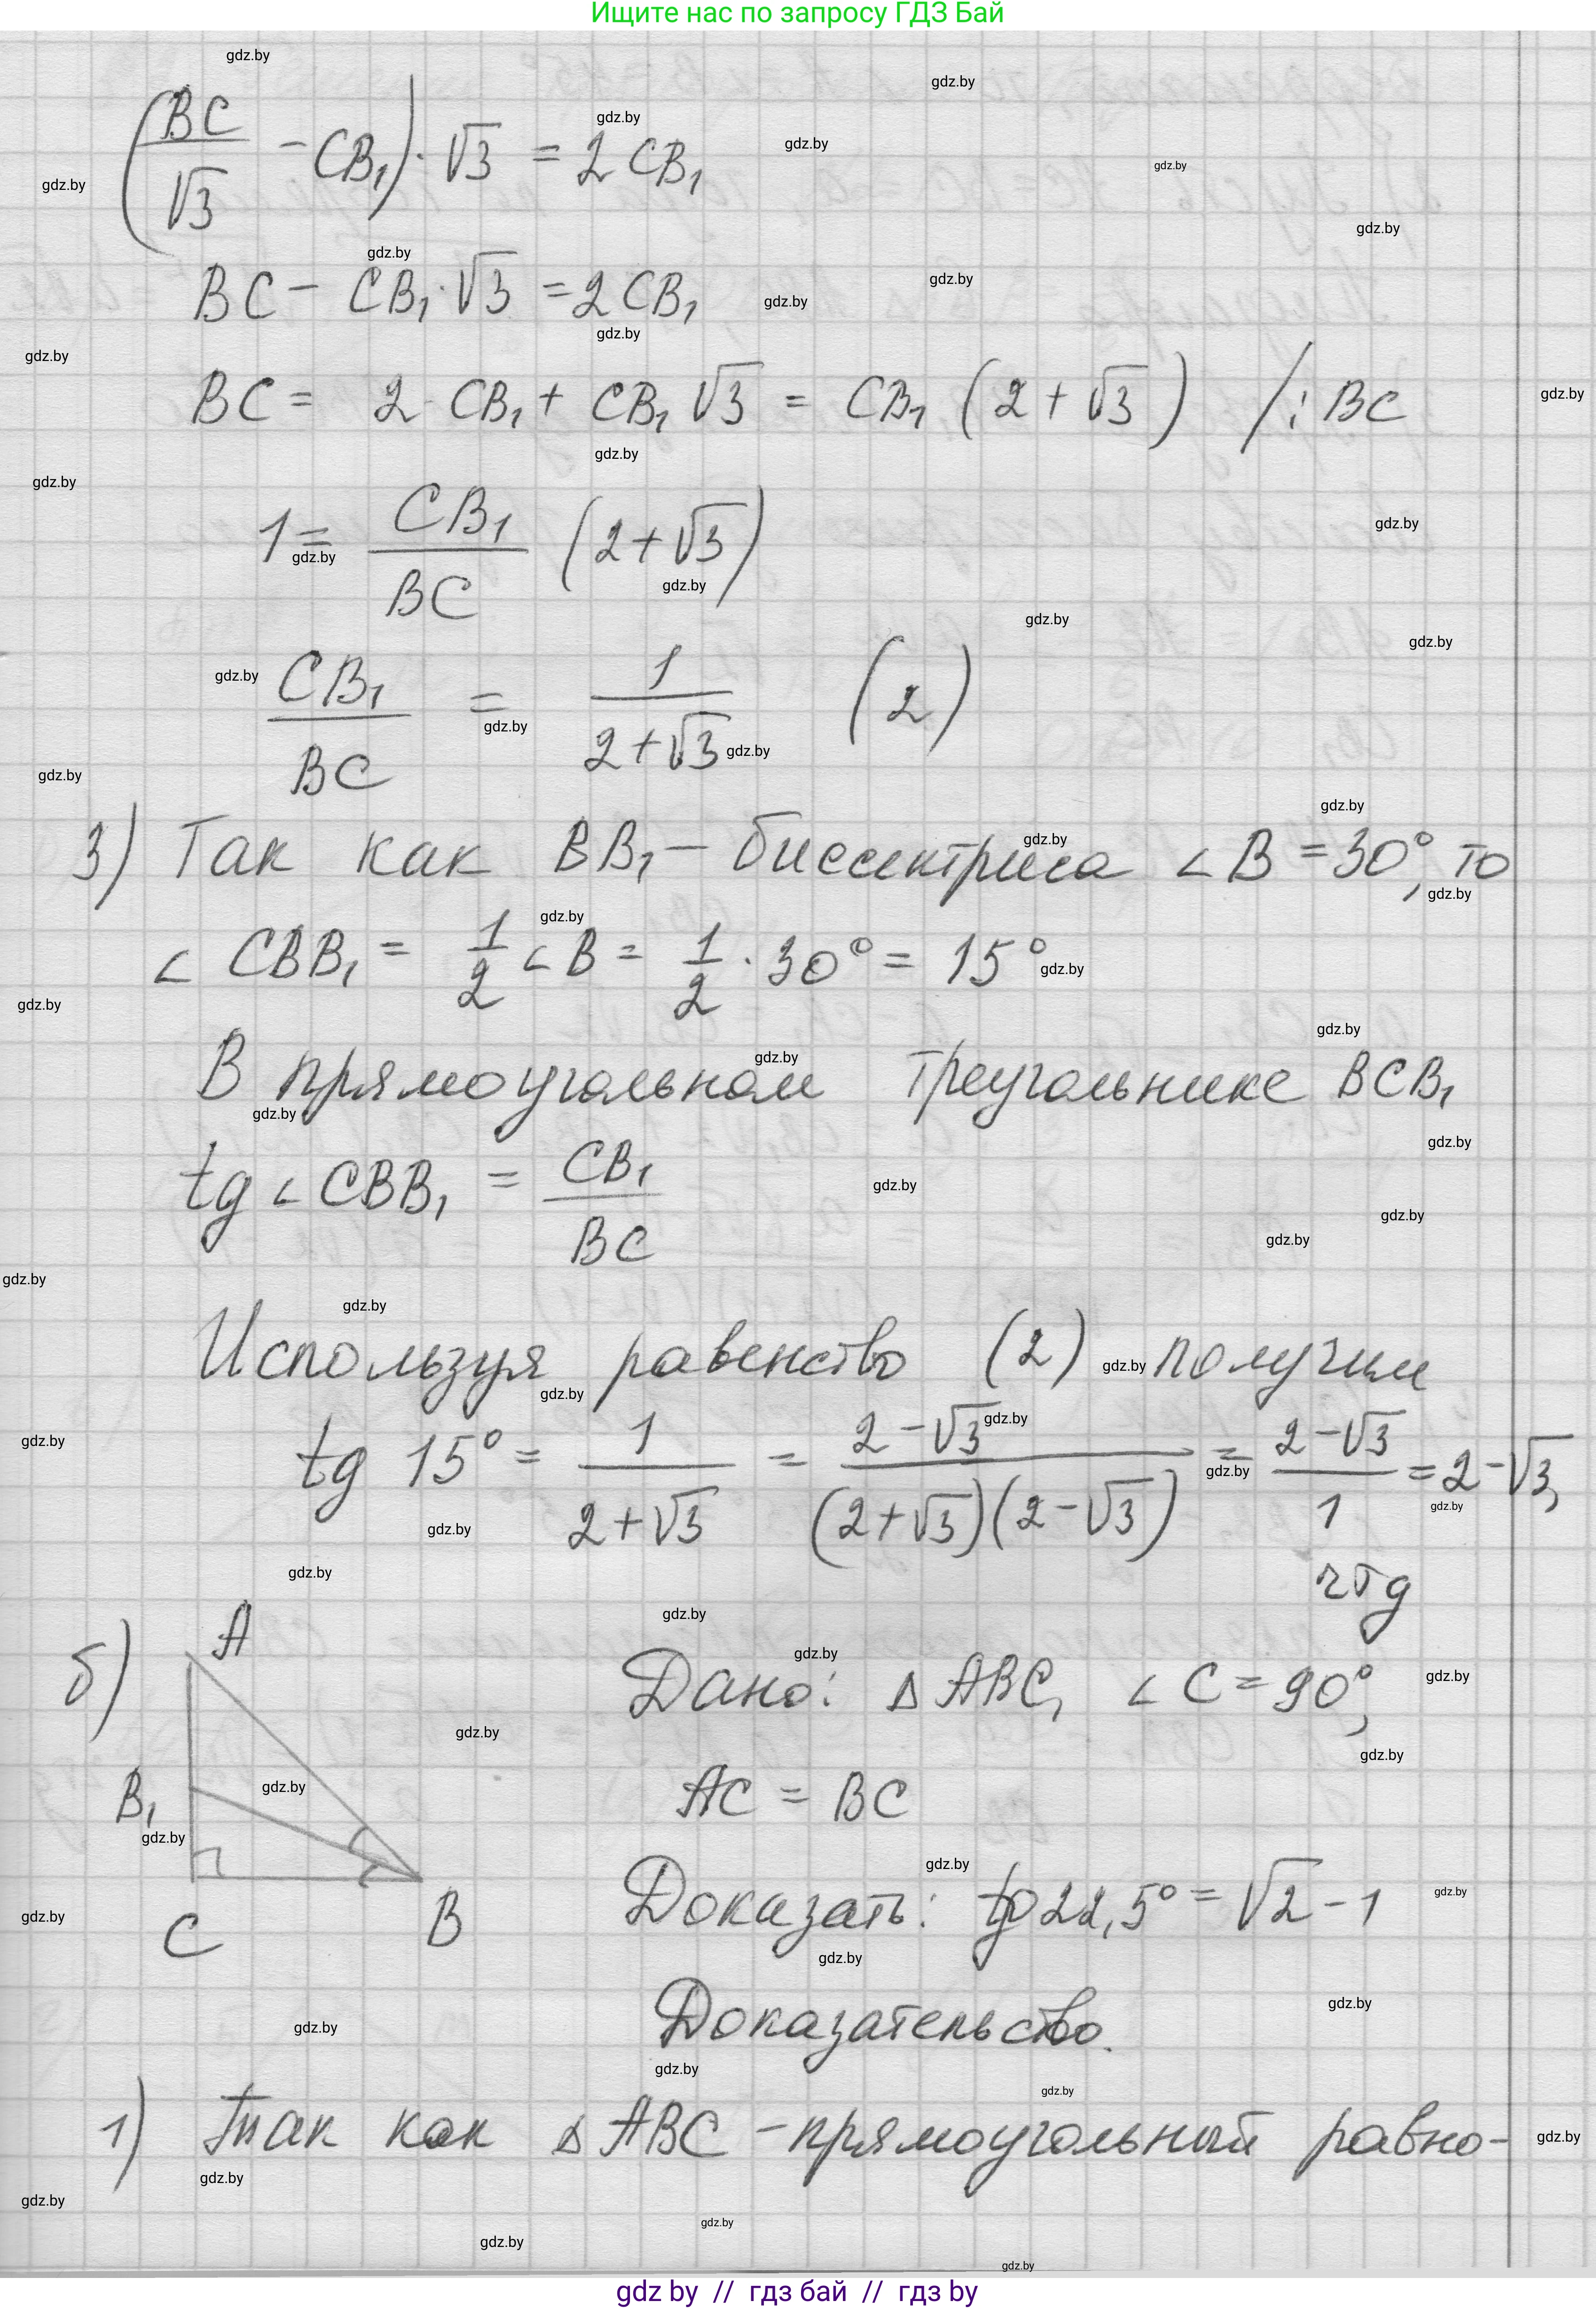 Ищите нас по запросу ГДЗ Бай
(BC/√3 - CB₁) · √3 = 2 CB₁
BC - CB₁ · √3 = 2 CB₁
BC = 2 CB₁ + CB₁ √3 = CB₁ (2 + √3) /: BC
1 = CB₁/BC (2 + √3)
CB₁/BC = 1/(2 + √3) (2)
3) Так как BB₁ - биссектриса ∠B = 30°, то
∠ CBB₁ = 1/2 ∠B = 1/2 · 30° = 15°
В прямоугольном треугольнике BCB₁
tg ∠ CBB₁ = CB₁/BC
Используя равенство (2) получим
tg 15° = 1/(2 + √3) = (2 - √3)/((2 + √3)(2 - √3)) = (2 - √3)/1 = 2 - √3,
чтд
б)
A
B₁
C
B
Дано: △ ABC, ∠ C = 90°,
AC = BC
Доказать: tg 22,5° = √2 - 1
Доказательство.
1) Так как △ ABC - прямоугольный равно-
gdz by // гдз бай // гдз by
gdz.by